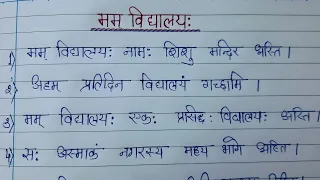 मम विद्यालयः
1) मम् विद्यालयः नामः शिशु मन्दिर अस्ति ।
2) अहम प्रतिदिन विद्यालयं गच्छामि ।
3) मम् विद्यालयः एकः प्रसिद्दः विद्यालयः अस्ति ।
4) सः अस्माकं नगरस्य मध्य भागे अस्ति ।